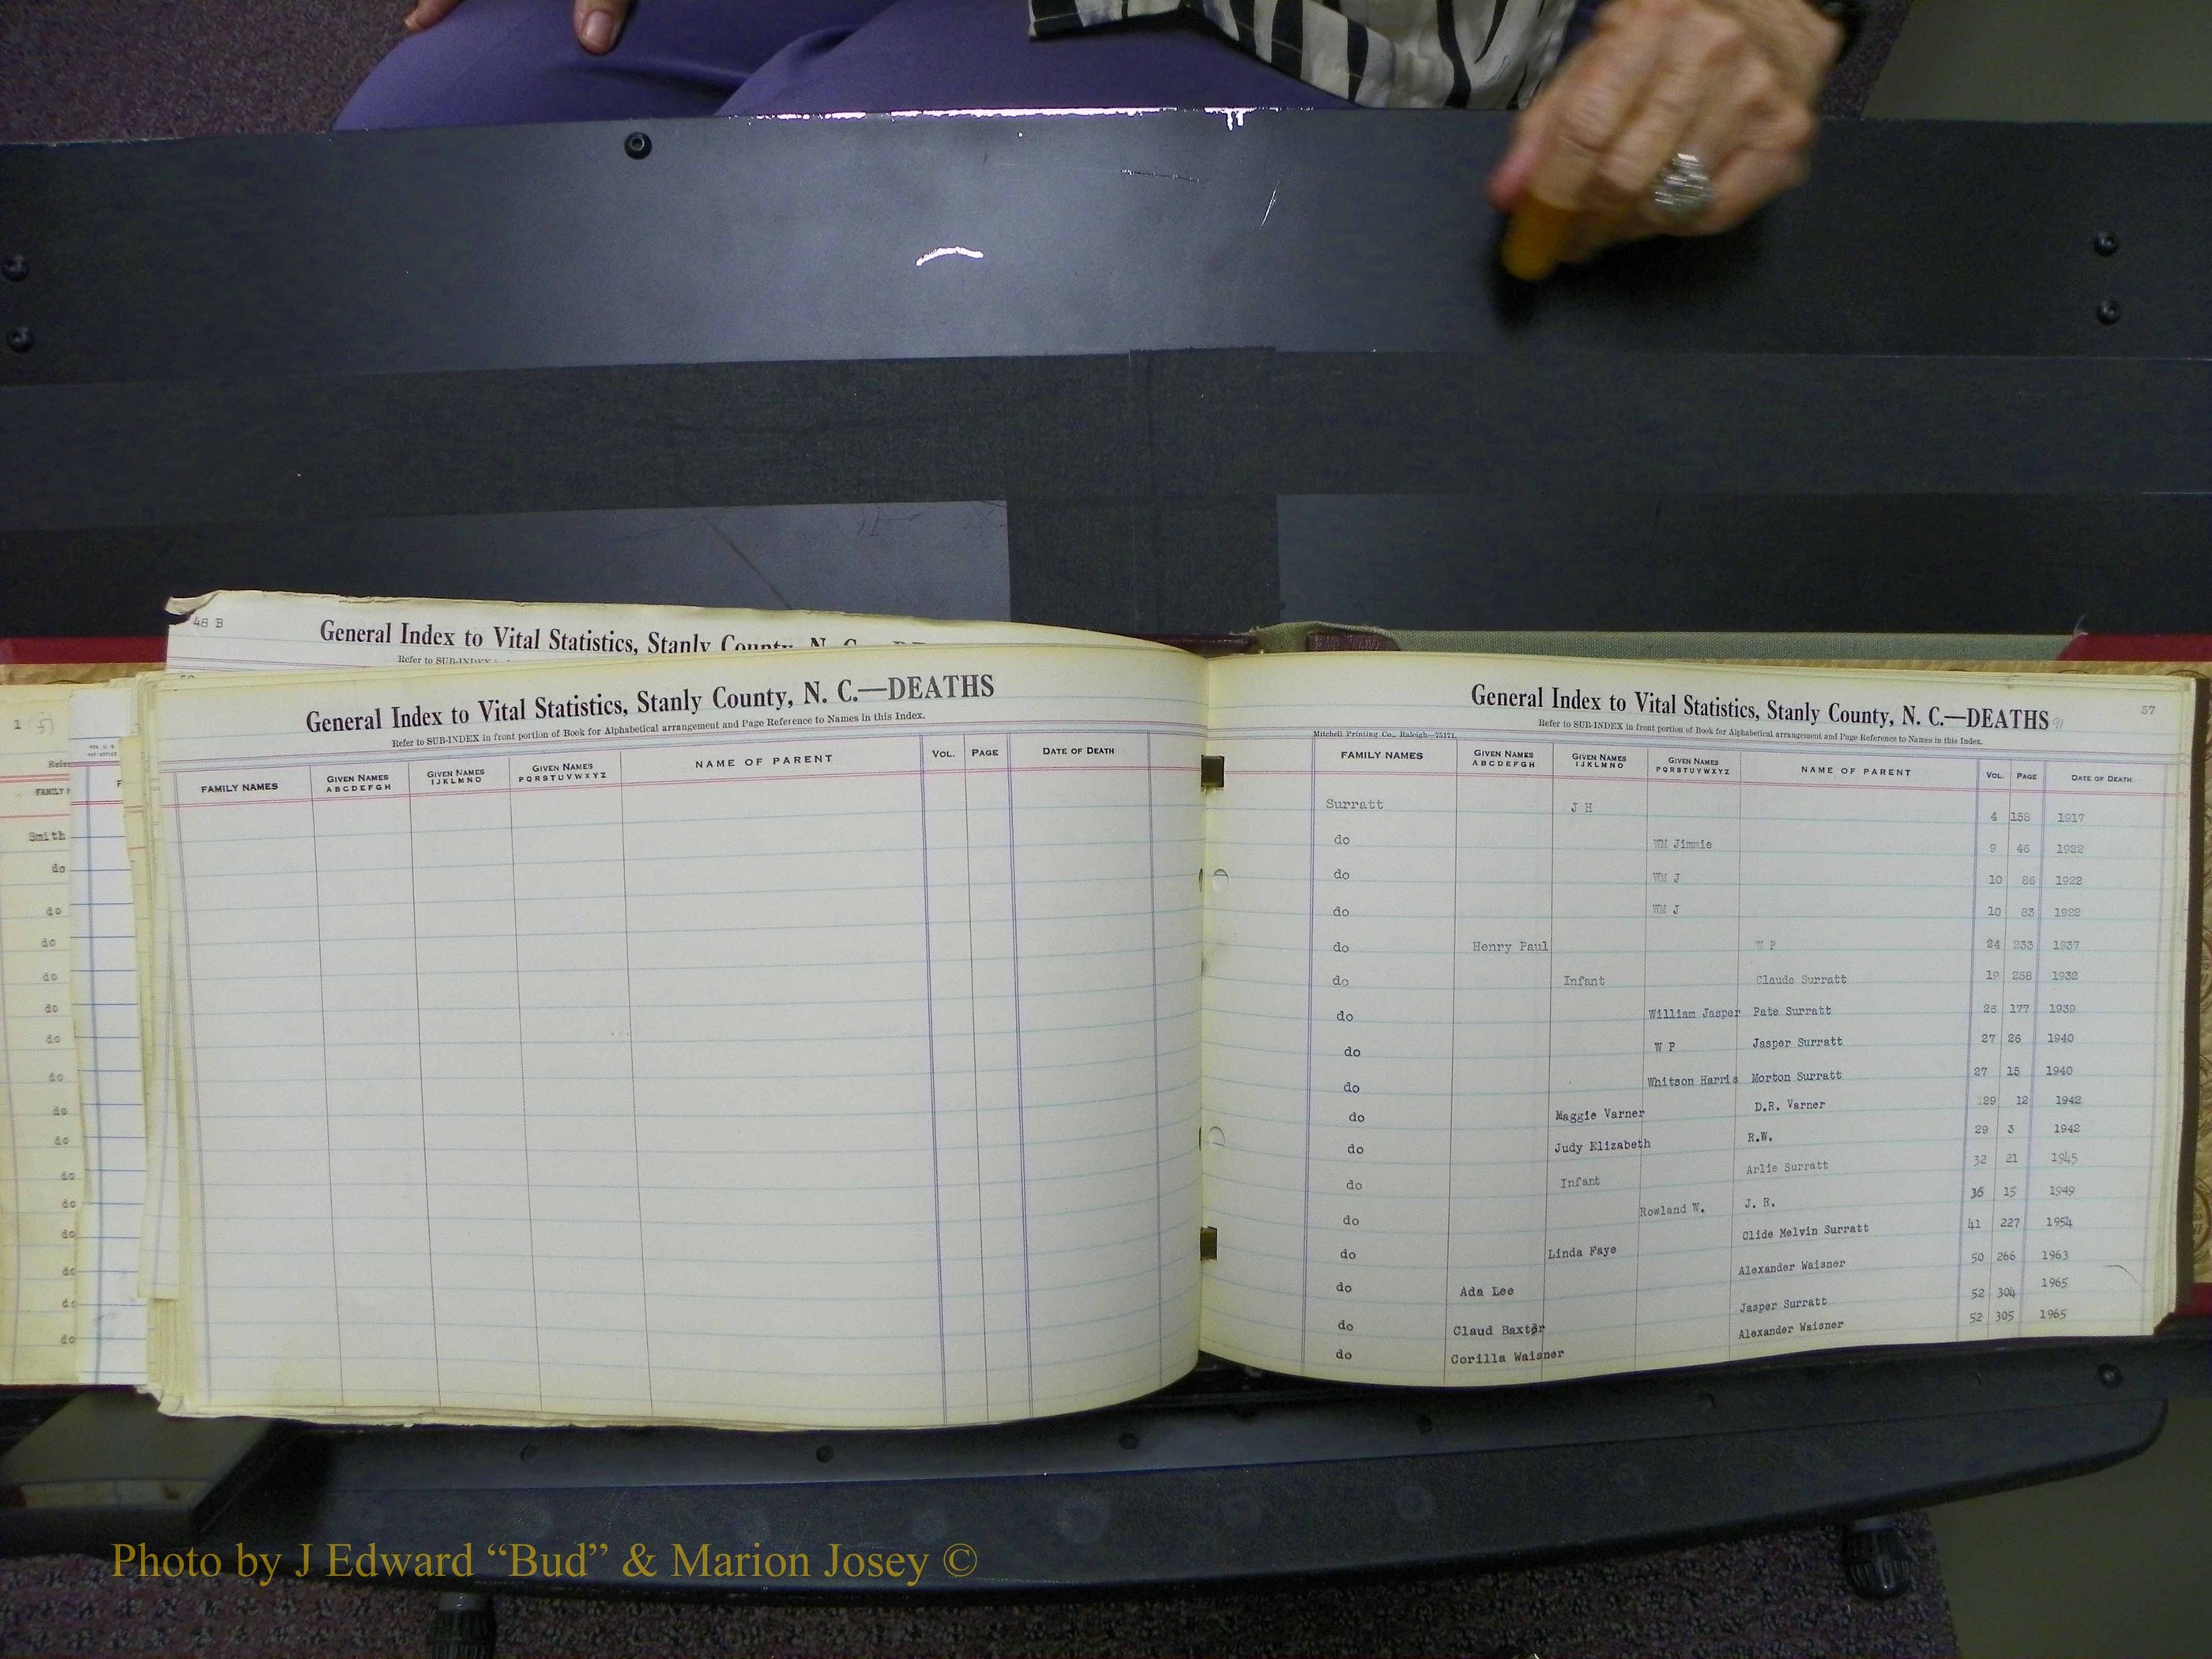 48 B
General Index to Vital Statistics, Stanly County, N. C.
Refer to SUB-INDEX
1 (5)
FAMILY N
Smith
do
do
do
do
do
do
do
do
do
do
do
do
do
do
do
General Index to Vital Statistics, Stanly County, N. C.—DEATHS
Refer to SUB-INDEX in front portion of Book for Alphabetical arrangement and Page Reference to Names in this Index.
FAMILY NAMES GIVEN NAMES ABCDEFGH GIVEN NAMES IJKLMNO GIVEN NAMES PQRSTUVWXYZ NAME OF PARENT VOL. PAGE DATE OF DEATH
57
General Index to Vital Statistics, Stanly County, N. C.—DEATHS
Refer to SUB-INDEX in front portion of Book for Alphabetical arrangement and Page Reference to Names in this Index.
Mitchell Printing Co., Raleigh—75171.
FAMILY NAMES GIVEN NAMES ABCDEFGH GIVEN NAMES IJKLMNO GIVEN NAMES PQRSTUVWXYZ NAME OF PARENT VOL. PAGE DATE OF DEATH
Surratt J H 4 158 1917
do WM Jimmie 9 46 1922
do WM J 10 86 1922
do WM J 10 83 1922
do Henry Paul W P 24 233 1937
do Infant Claude Surratt 19 258 1932
do William Jasper Pate Surratt 26 177 1939
do W P Jasper Surratt 27 26 1940
do Whitson Harris Morton Surratt 27 15 1940
do Maggie Varner D.R. Varner 29 12 1942
do Judy Elizabeth R.W. 29 3 1942
do Infant Arlie Surratt 32 21 1945
do Rowland W. J. R. 36 15 1949
do Linda Faye Clide Melvin Surratt 41 227 1954
do Ada Lee Alexander Waisner 50 266 1963
do Claud Baxter Jasper Surratt 52 304 1965
do Corilla Waisner Alexander Waisner 52 305 1965
Photo by J Edward “Bud” & Marion Josey ©